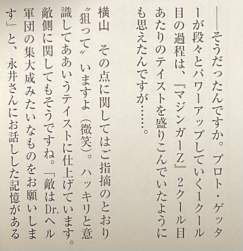 ――そうだったんですか。プロト・ゲッタ
ーが段々とパワーアップしていく１クール
目の過程は、『マジンガーＺ』２クール目
あたりのテイストを盛りこんでいたように
も思えたんですが……。
横山　その点に関してはご指摘のとおり
〝狙って〟いますよ（微笑）。ハッキリと意
識してああいうテイストに仕上げています。
敵側に関してもそうですね。『敵はDr.ヘル
軍団の集大成みたいなものをお願いしま
す』と、永井さんにお話しした記憶がある